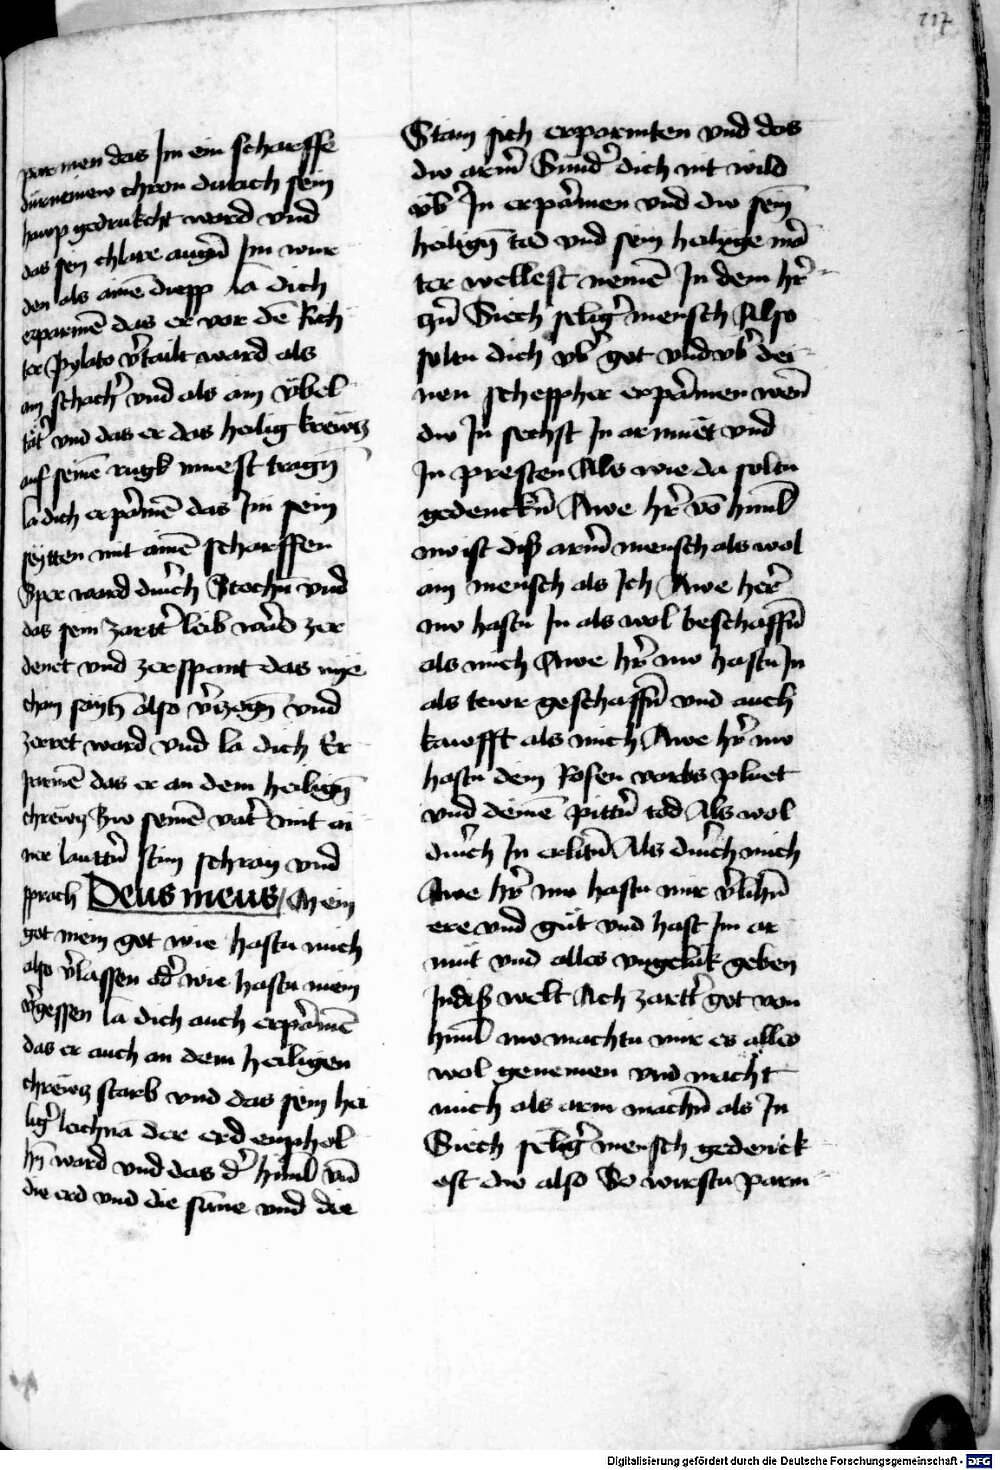 217
parmen das Im ein scharffe
dürneinew chron durch sein
haup gedrukcht ward vnd
das sey chlare augn̄ Im wur
den als ainē diepp la dich
erparmē das er vor dē Rich
ter Pylato v̉tailt ward als
ain schach̉ vnd als ain vbel
tät̉ vnd das er das heilig krewtz
auf seinē rugk muest tragn̄
la dich erpa̅rmē das Im sein
seytten mit ainē scharffen
Sper ward dur̄ch Stochn̄ vnd
das sein zartt̉ leib wa̅rd zer
denet vnd zerspant das nye
chain sayt̄ also v̉zogn̄ vnd
zerret ward vnd la dich Er
parmē das er an dem heilign̄
chrewtz Zwo seinē vat̉ mit ai
ner lauttn̄ stim schray vnd
sprach Deus meus / Mein
got mein got wie hastu mich
also v̉lassen od̉ wie hastu mein
v̉gessen la dich auch erpa̅rmē
das er auch an dem heiligen
chrewtz starb vnd das sein hei
lig̉ leichnā der erd enphol
hn̄ ward vnd das d̉ himl̄ vn̄
die erd vnd die sūne vnd die
Stain sich erparmten vnd das
dw arm̄ Sünd̉ dich nit wild
vb̉ In erpa̅rmen vnd dw sein̄
heilign̄ tod vnd sein heilige ma̅r
ter wellest nemē In dem hr̄
tzn̄ Siech selig̉ mensch Also
soltu dich vb̉ got vnd vb̉ dei
nen scheppher erpa̅rmen wen̄
dw In sechst In armüet vnd
In presten Als wie da soltu
gedenckn̄ Awe hr̄ vō himl̄
nw ist diß arm̄ mensch als wol
ain mensch als Ich Awe her̄
nw hastu In als wol beschaffn̄
als mich Awe hr̄ nw hastu In
als tewr geschaffn̄ vnd auch
kaufft als mich Awe hr̄ nw
hastu dein Rosen varbs pluet
vnd deinē pittn̄ tod Als wol
dur̄ch In erlitn̄ Als dur̄ch mich
Awe hr̄ nw hastu mir v̉lihn̄
ere vnd güt vnd hast Im ar
müt vnd alles vngeluk geben
In diß welt Ach zartt̉ got von
himl̄ nw machtu mir es alles
wol genemen vnd macht
mich als arm machn̄ als In
Siech selig̉ mensch gedenck
est dw also So wirstu parm
Digitalisierung gefördert durch die Deutsche Forschungsgemeinschaft - DFG